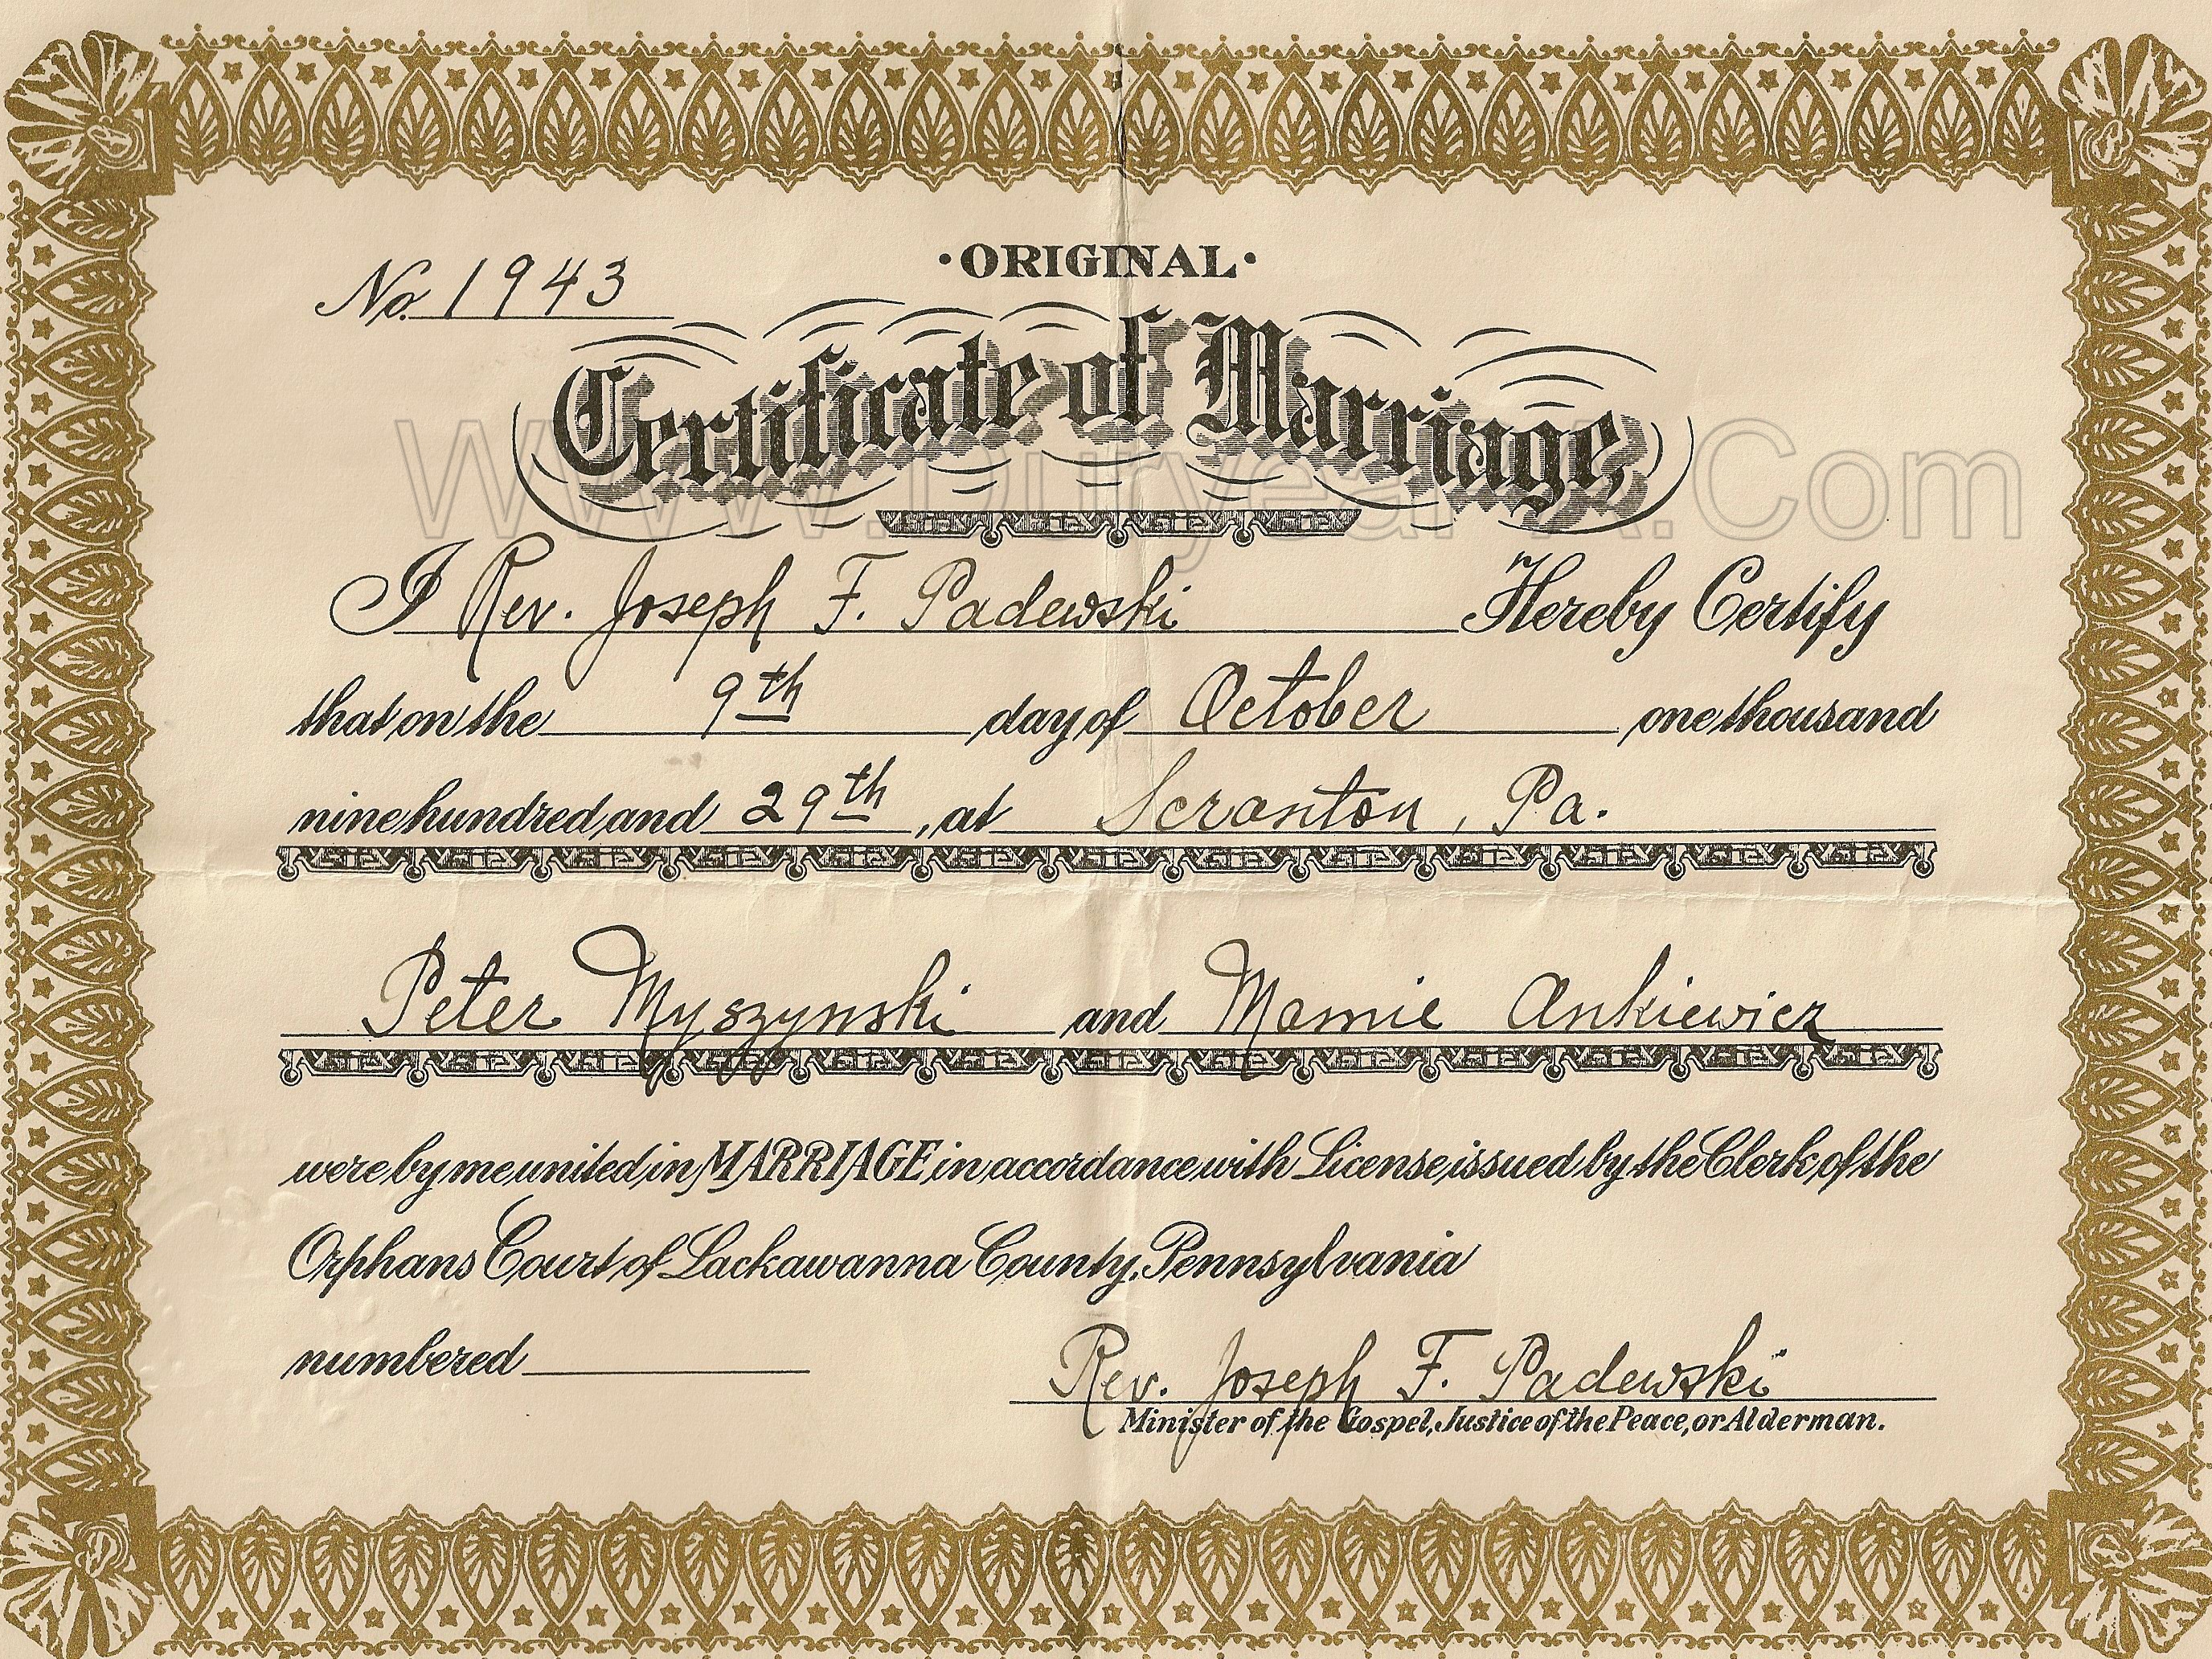 ·ORIGINAL·
No. 1943
Certificate of Marriage,
www.DuryeaPA.Com
I Rev. Joseph F. Padewski Hereby Certify
that on the 9th day of October one thousand
nine hundred and 29th, at Scranton, Pa.
Peter Myszynski and Mamie Ankiewicz
were by me united in MARRIAGE in accordance with License issued by the Clerk of the
Orphans Court of Lackawanna County, Pennsylvania
numbered
Rev. Joseph F. Padewski
Minister of the Gospel, Justice of the Peace, or Alderman.